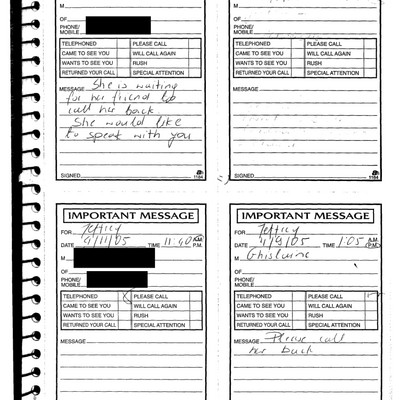 M
M
OF
OF
PHONE/
MOBILE
PHONE/
MOBILE
TELEPHONED PLEASE CALL
CAME TO SEE YOU WILL CALL AGAIN
WANTS TO SEE YOU RUSH
RETURNED YOUR CALL SPECIAL ATTENTION
TELEPHONED PLEASE CALL
CAME TO SEE YOU WILL CALL AGAIN
WANTS TO SEE YOU RUSH
RETURNED YOUR CALL SPECIAL ATTENTION
MESSAGE She is waiting
for her friend to
call her back
She would like
to speak with you
SIGNED 1184
MESSAGE
SIGNED 1184
IMPORTANT MESSAGE
FOR Jeffrey
DATE 9/11/05 TIME 11:40 A.M. P.M.
M
OF
PHONE/
MOBILE
TELEPHONED X PLEASE CALL
CAME TO SEE YOU WILL CALL AGAIN
WANTS TO SEE YOU RUSH
RETURNED YOUR CALL SPECIAL ATTENTION
MESSAGE
IMPORTANT MESSAGE
FOR Jeffrey
DATE /9/05 TIME 1:05 A.M. P.M.
M Ghislaine
OF
PHONE/
MOBILE
TELEPHONED PLEASE CALL
CAME TO SEE YOU WILL CALL AGAIN
WANTS TO SEE YOU RUSH
RETURNED YOUR CALL SPECIAL ATTENTION
MESSAGE Please call
her back